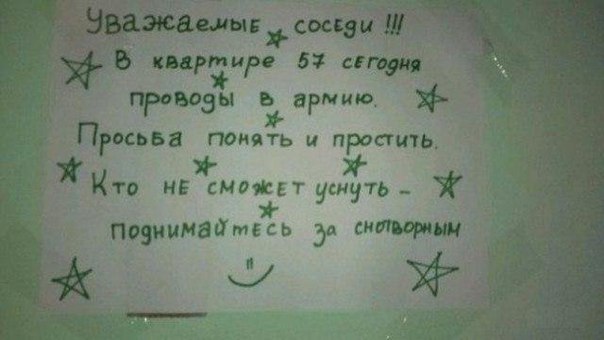 Уважаемые соседи !!!
В квартире 57 сегодня
проводы в армию.
Просьба понять и простить.
Кто не сможет уснуть -
поднимайтесь за снотворным